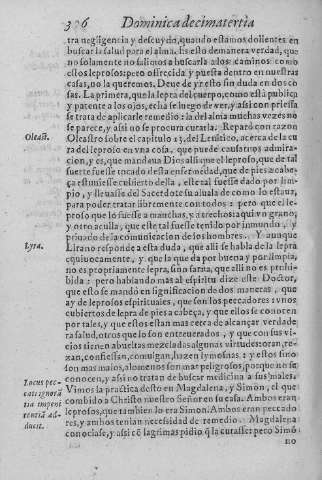 306 Dominica decimatertia
tra negligentia y descuydo, quando estamos dollentes en
buscar la salud para el alma. Y es esto de manera verdad, que
no solamente no salimos a buscarla a los caminos como
estos leprosos: pero ofrecida y puesta dentro en nuestras
casas, no la queremos. Deue de yr esto sin duda en dos co
sas. La primera, que la lepra del cuerpo, como está publica
y patente a los ojos, echase luego de ver, y assi con priessa
se trata de aplicarle remedio: la del alma muchas vezes no
se parece, y assi no se procura curarla. Reparó con razon
Oleast.
Oleastro sobre el capitulo 13. del Leuitico, acerca de la cu
ra del leproso en vna cosa, que puede causarnos admira-
cion, y es, que mandaua Dios alli que el leproso, que de tal
suerte fuesse tocado desta enfermedad, que de pies a cabe-
ça estuuiesse cubierto della, este tal fuesse dado por lim-
pio, y lleuasse del Sacerdote su alualá de como lo estaua,
para poder tratar libremente con todos: pero que el le-
proso que lo fuesse a manchas, y a trechos: aqui vn grano,
y otro aculla, que este tal fuesse tenido por inmundo, y
priuado de la comunicacion de los hombres. Y aunque
Lyra.
Lirano responde a esta duda, que alli se habla de la lepra
equiuocamente, y que la que da por buena y por limpia,
no es propriamente lepra, sino sarna, que alli no es prohi-
bida: pero hablando mas al espiritu dize este Doctor,
que esto se mandó en significacion de dos maneras, que
ay de leprosos espirituales, que son los peccadores: vnos
cubiertos de lepra de pies a cabeça, y que ellos se conocen
por tales, y que estos estan mas cerca de alcançar verdade
ra salud, otros que lo son entreuerados, y que con sus vi-
cios tienen abueltas mezcladas algunas virtudes: oran, re-
zan, confiessan, comulgan, hazen lymosnas: y estos sino
son mas malos, alomenos son mas peligrosos, porque no se
conocen, y assi no tratan de buscar medicina a sus males.
Locus pec-
cati ignorã
tia impeni
tentiã ad-
ducit.
Vimos la practica desto en Magdalena, y Simon, el que
combido a Christo nuestro Señor en su casa. Ambos eran
leprosos, que tambien lo era Simon. Ambos eran peccado
res, y ambos tenian necessidad de remedio. Magdalena
conociase, y assi cõ lagrimas pidio q̃ la curasse: pero Simõ
no